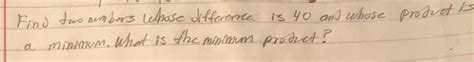 Find two numbers whose difference is 40 and whose product is
a minimum. What is the minimum product?